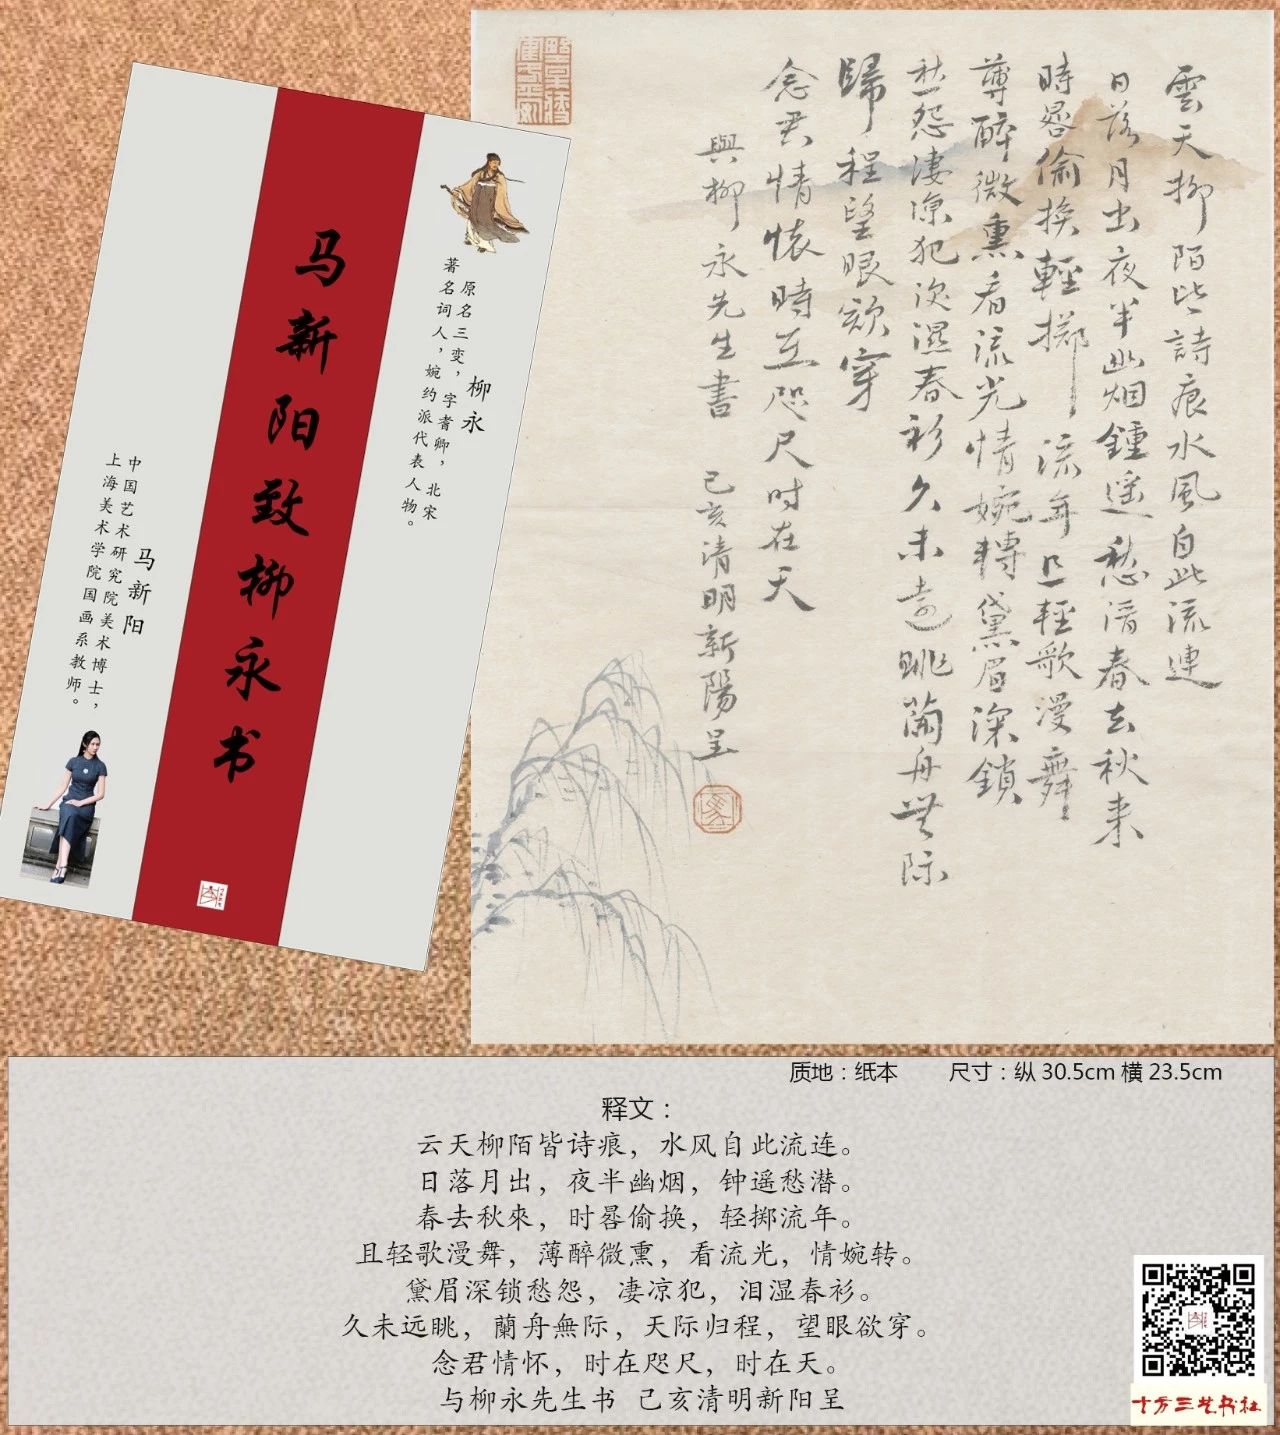 马新阳致柳永书
柳永
原名三变，字耆卿，北宋
著名词人，婉约派代表人物。
马新阳
中国艺术研究院美术博士，
上海美术学院国画系教师。
雲天柳陌皆詩痕水風自此流連
日落月出夜半幽烟鍾遥愁潛春去秋来
時晷偷换輕擲流年且輕歌漫舞
薄醉微熏看流光情婉轉黛眉深鎖
愁怨淒涼犯淚濕春衫久未遠眺蘭舟無际
歸程望眼欲穿
念君情懷時在咫尺时在天
與柳永先生書 己亥清明新陽呈
质地：纸本 尺寸：纵 30.5cm 横 23.5cm
释文：
云天柳陌皆诗痕，水风自此流连。
日落月出，夜半幽烟，钟遥愁潜。
春去秋來，时晷偷换，轻掷流年。
且轻歌漫舞，薄醉微熏，看流光，情婉转。
黛眉深锁愁怨，凄凉犯，泪湿春衫。
久未远眺，蘭舟無际，天际归程，望眼欲穿。
念君情怀，时在咫尺，时在天。
与柳永先生书 己亥清明新阳呈
十方三艺书社